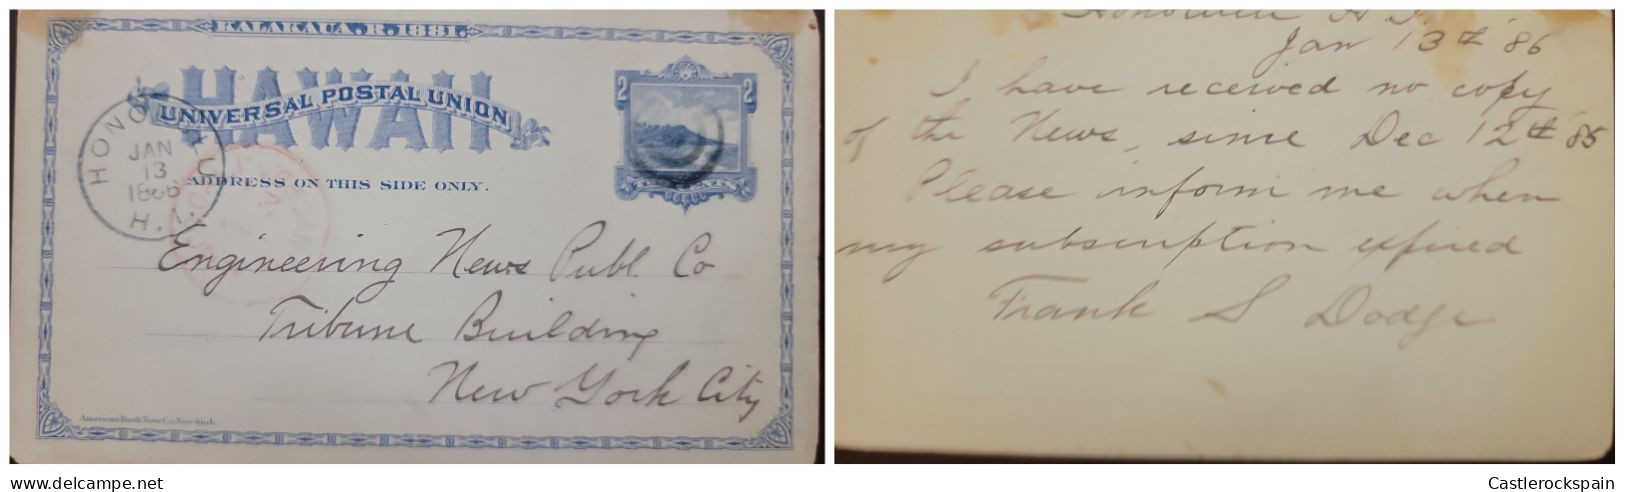 KALAKAUA. R. 1881.
HAWAII
UNIVERSAL POSTAL UNION
ADDRESS ON THIS SIDE ONLY.
2 2
TWO CENTS
HONOLULU
JAN
13
1886
H. I.
Engineering News Publ. Co
Tribune Building
New York City
American Bank Note Co. New York.
Honolulu H I.
Jan 13th '86
I have received no copy
of the News, since Dec 12th '85
Please inform me when
my subscription expired
Frank S Dodge
www.delcampe.net
Castlerockspain